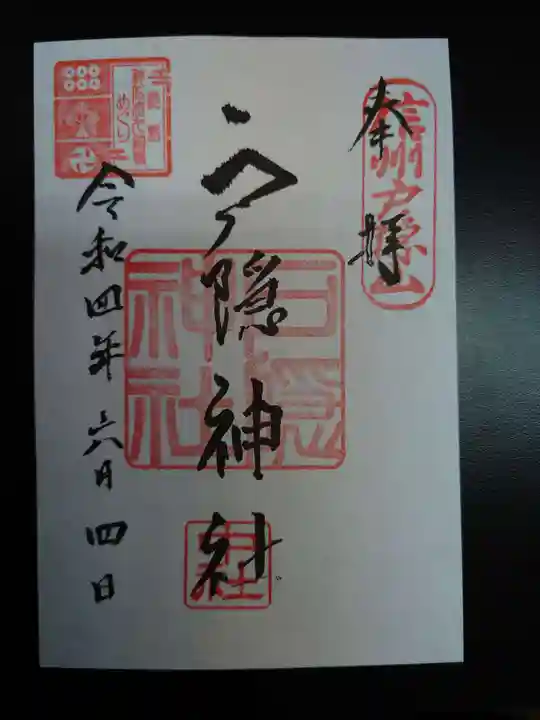 奉拝
信州戸隠山
戸隠神社
戸隠
神社
中社
めぐり
卍
令和四年 六月四日